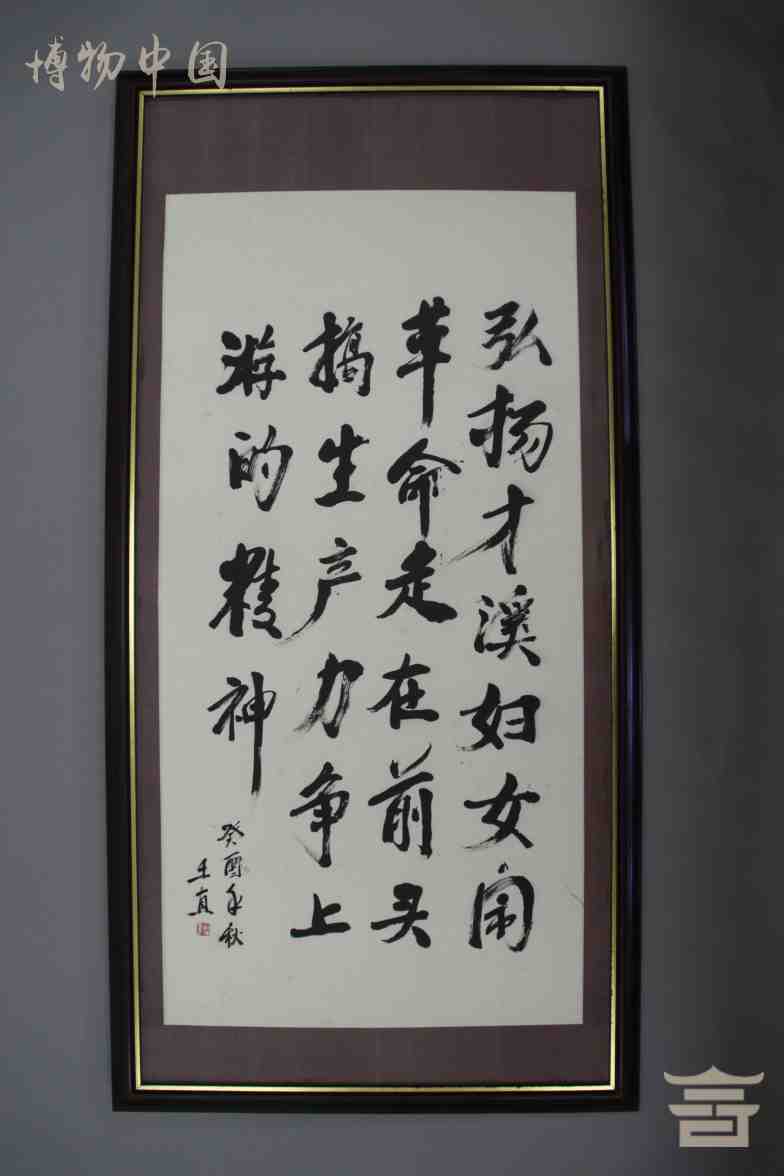 博物中国
弘扬才溪妇女闹
革命走在前头
搞生产力争上
游的精神
癸酉年秋
王直